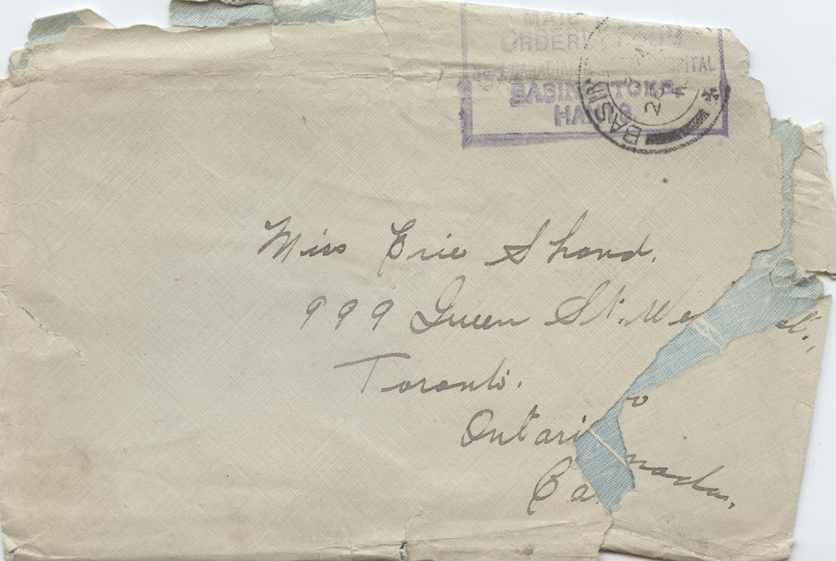 MAIL
ORDERLY ROOM
CANADIAN HOSPITAL
BASINGSTOKE
HANTS.
BASIN
Miss Erie Shand.
999 Queen St. West.,
Toronto.
Ontario
Canada.